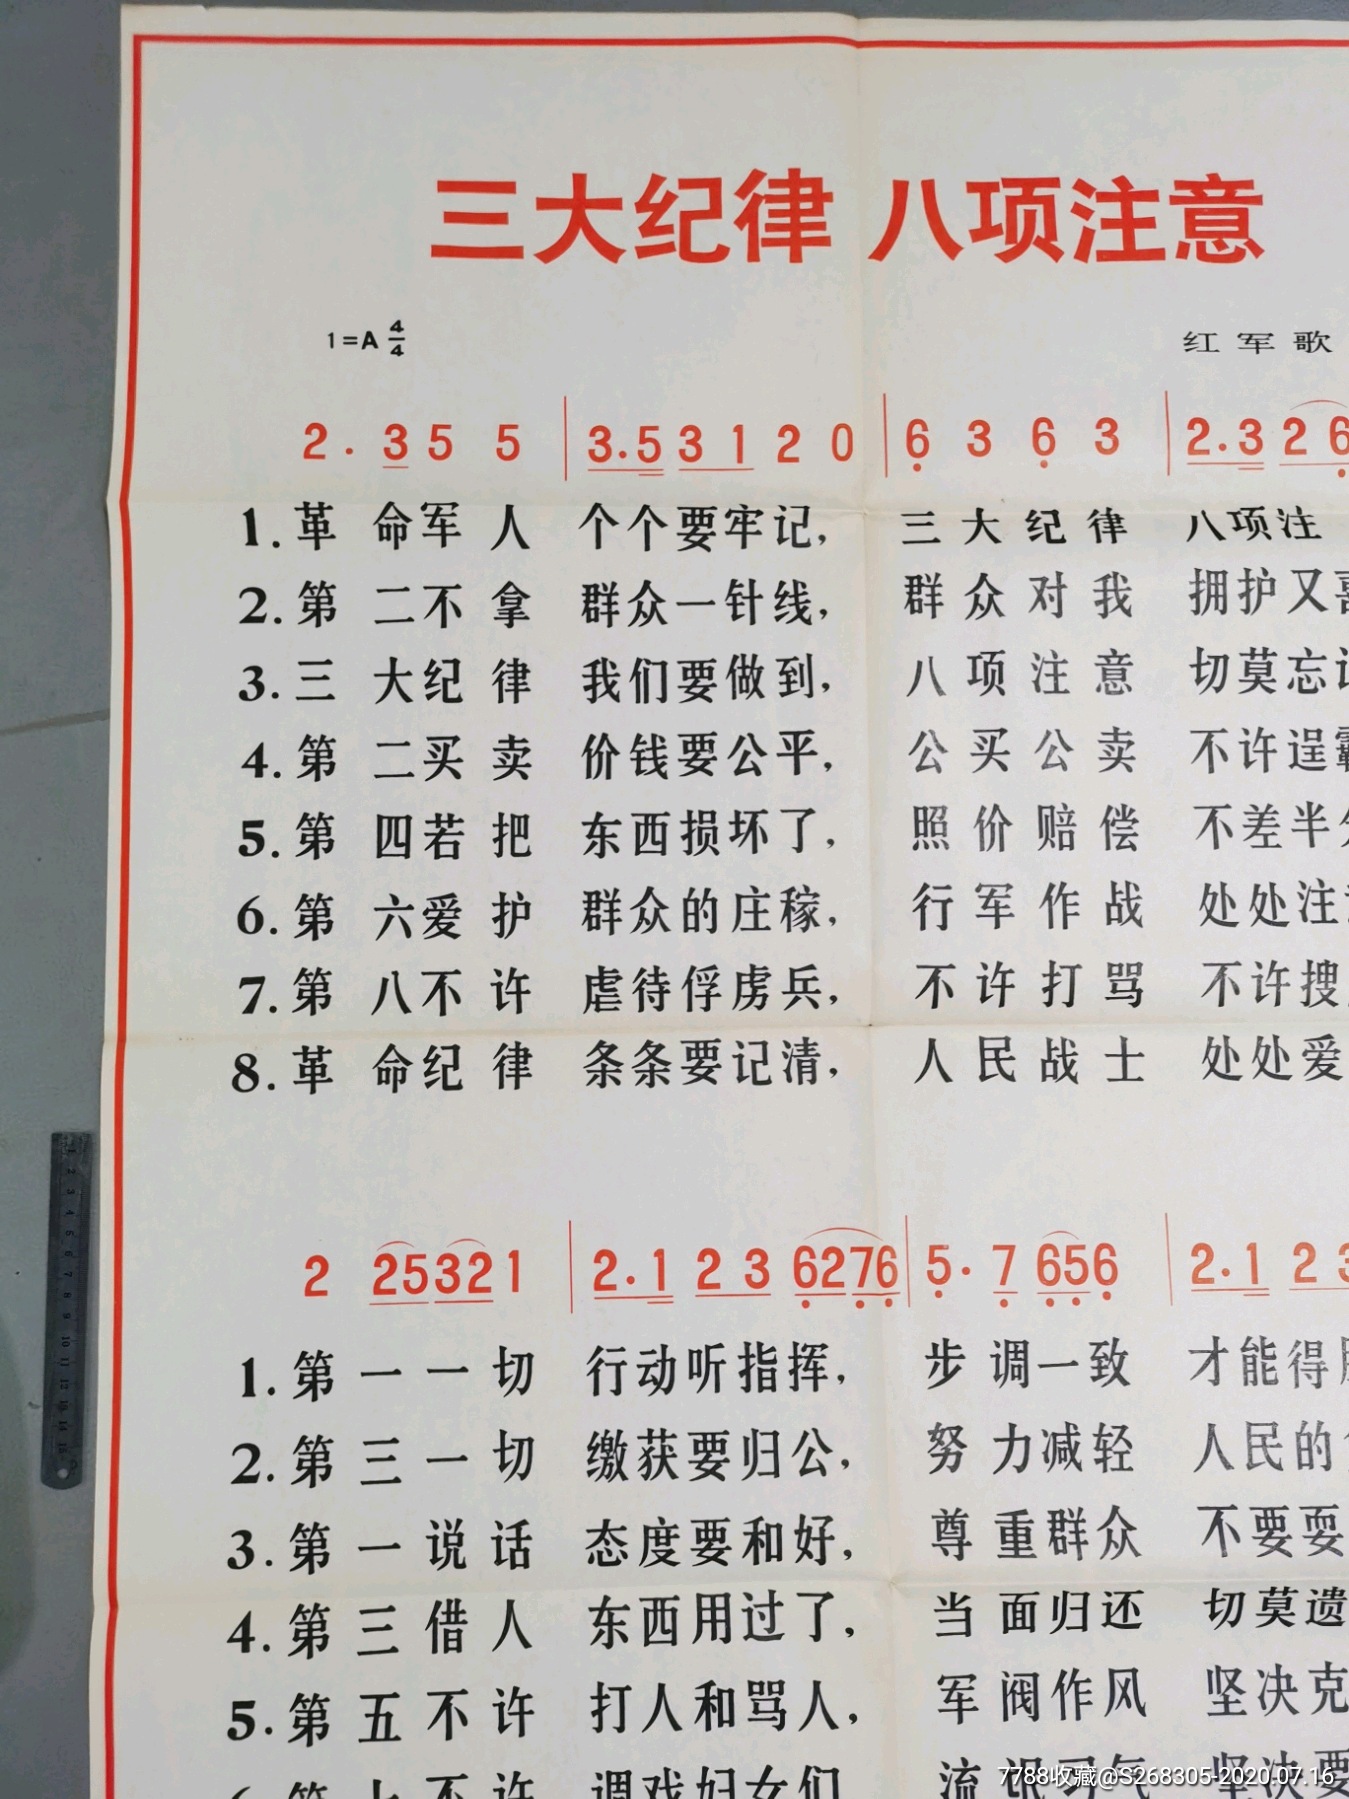 三大纪律 八项注意
1=A 4/4
红军歌
2 . 3 5 5 | 3.5 3 1 2 0 | 6 3 6 3 | 2.3 2 6
1.革命军人 个个要牢记, 三大纪律 八项注
2.第二不拿 群众一针线, 群众对我 拥护又喜
3.三大纪律 我们要做到, 八项注意 切莫忘记
4.第二买卖 价钱要公平, 公买公卖 不许逞霸
5.第四若把 东西损坏了, 照价赔偿 不差半分
6.第六爱护 群众的庄稼, 行军作战 处处注意
7.第八不许 虐待俘虏兵, 不许打骂 不许搜
8.革命纪律 条条要记清, 人民战士 处处爱
2 2532 1 | 2.1 2 3 6276 | 5. 7 656 | 2.1 2 3
1.第一一切 行动听指挥, 步调一致 才能得胜
2.第三一切 缴获要归公, 努力减轻 人民的
3.第一说话 态度要和好, 尊重群众 不要耍
4.第三借人 东西用过了, 当面归还 切莫遗
5.第五不许 打人和骂人, 军阀作风 坚决克
6.第七不许 调戏妇女们 流氓习气 坚决要
7788收藏@S268305-2020.07.16